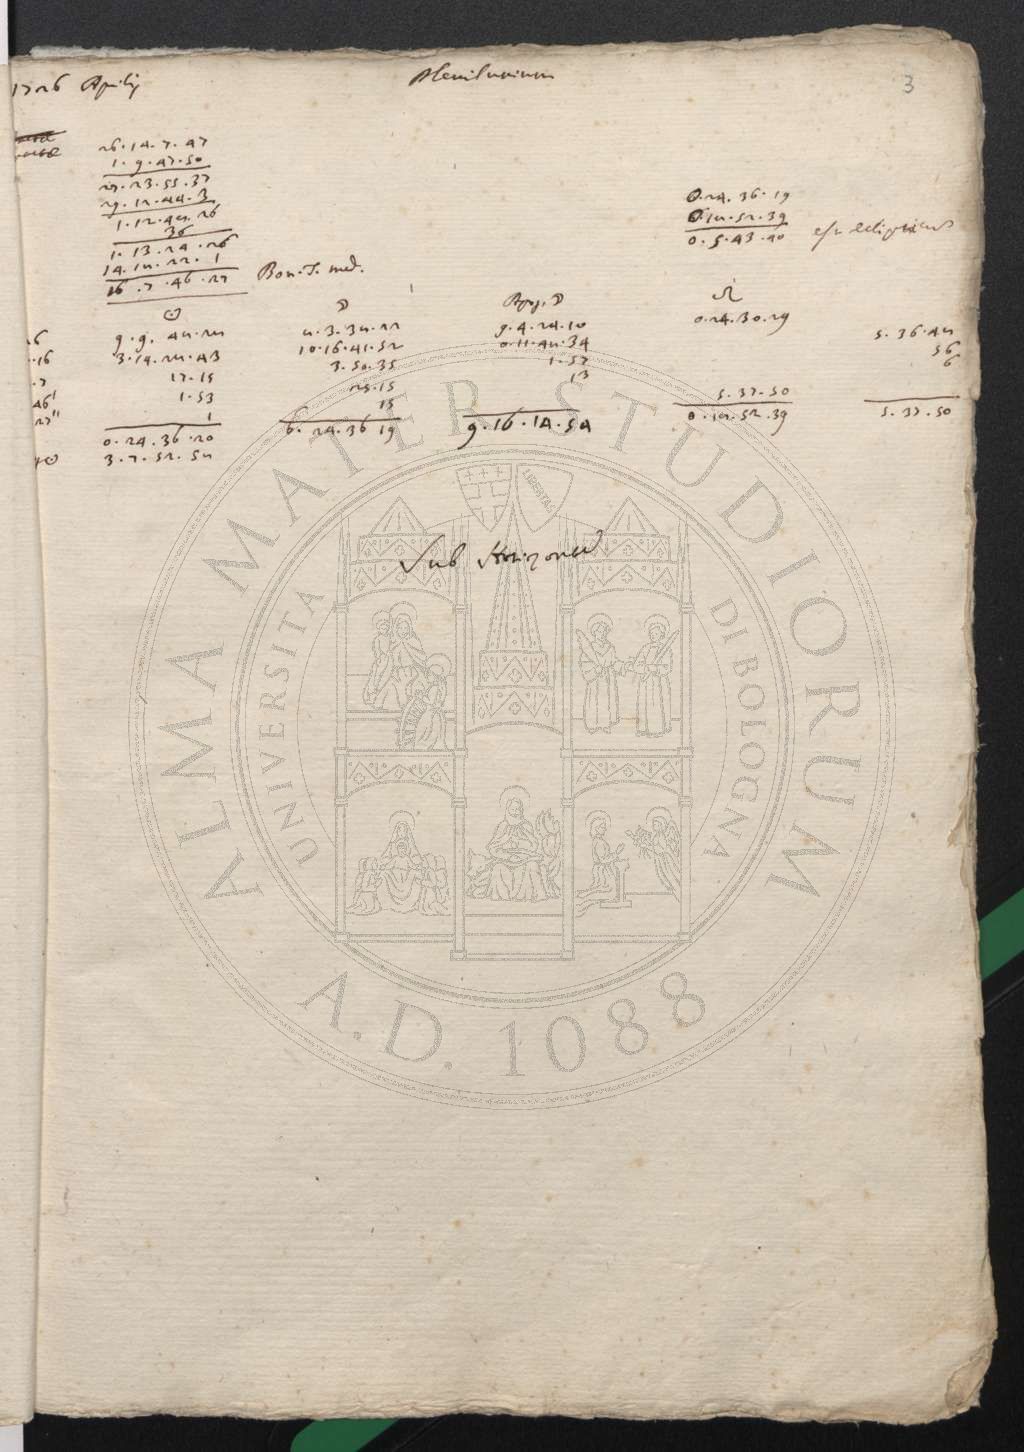 1726 Aprilis
Plenilunium
3
26.14.7.47
1.9.47.50
27.23.55.37
29.12.44.3
1.12.48.26
36
1.13.24.26
14.18.22.1
16.7.46.27 Bon. T. med.
0.24.36.19
0.18.52.39
0.5.43.40 est eclipticus
☉ ☽ Apog. ☽ ☊
26 9.9.48.28 8.3.38.22 9.4.24.10 0.24.30.29 5.36.48
.16 3.14.28.43 10.16.41.52 0.11.48.34 56
.7 17.15 3.50.35 1.57 6
46' 1.53 25.15 13 5.37.50
27'' 1 15
0.24.36.20 6.24.36.19 9.16.14.54 0.18.52.39 5.37.50
☉ 3.7.52.58
Sub Horizonte
ALMA MATER STUDIORUM
A.D. 1088
UNIVERSITA DI BOLOGNA
LIBERTAS